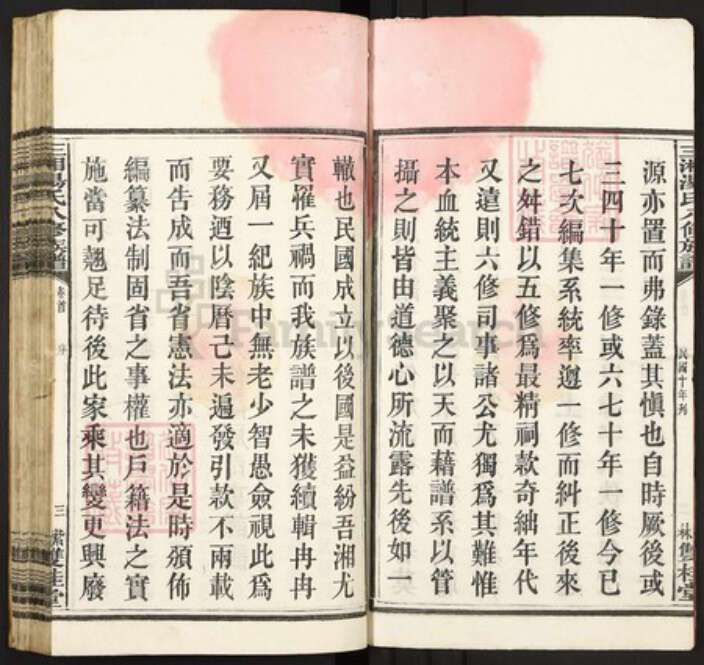 三湘湯氏八修族譜
民國十年刊
林雙桂堂
源亦置而弗錄蓋其慎也自時厥後或
三四十年一修或六七十年一修今已
七次編集系統率遵一修而糾正後來
之舛錯以五修爲最精祠款奇絀年代
又遠則六修司事諸公尤獨爲其難惟
本血統主義聚之以天而藉譜系以管
攝之則皆由道德心所流露先後如一
轍也民國成立以後國是益紛吾湘尤
實罹兵禍而我族譜之未獲續輯冉冉
又屆一紀族中無老少智愚僉視此爲
要務迺以陰曆己未遍發引款不兩載
而告成而吾省憲法亦適於是時頒佈
編纂法制固省之事權也戶籍法之實
施當可翹足待後此家乘其變更興廢
三湘湯氏八修族譜
卷首
序
三
雙桂堂
FamilySearch